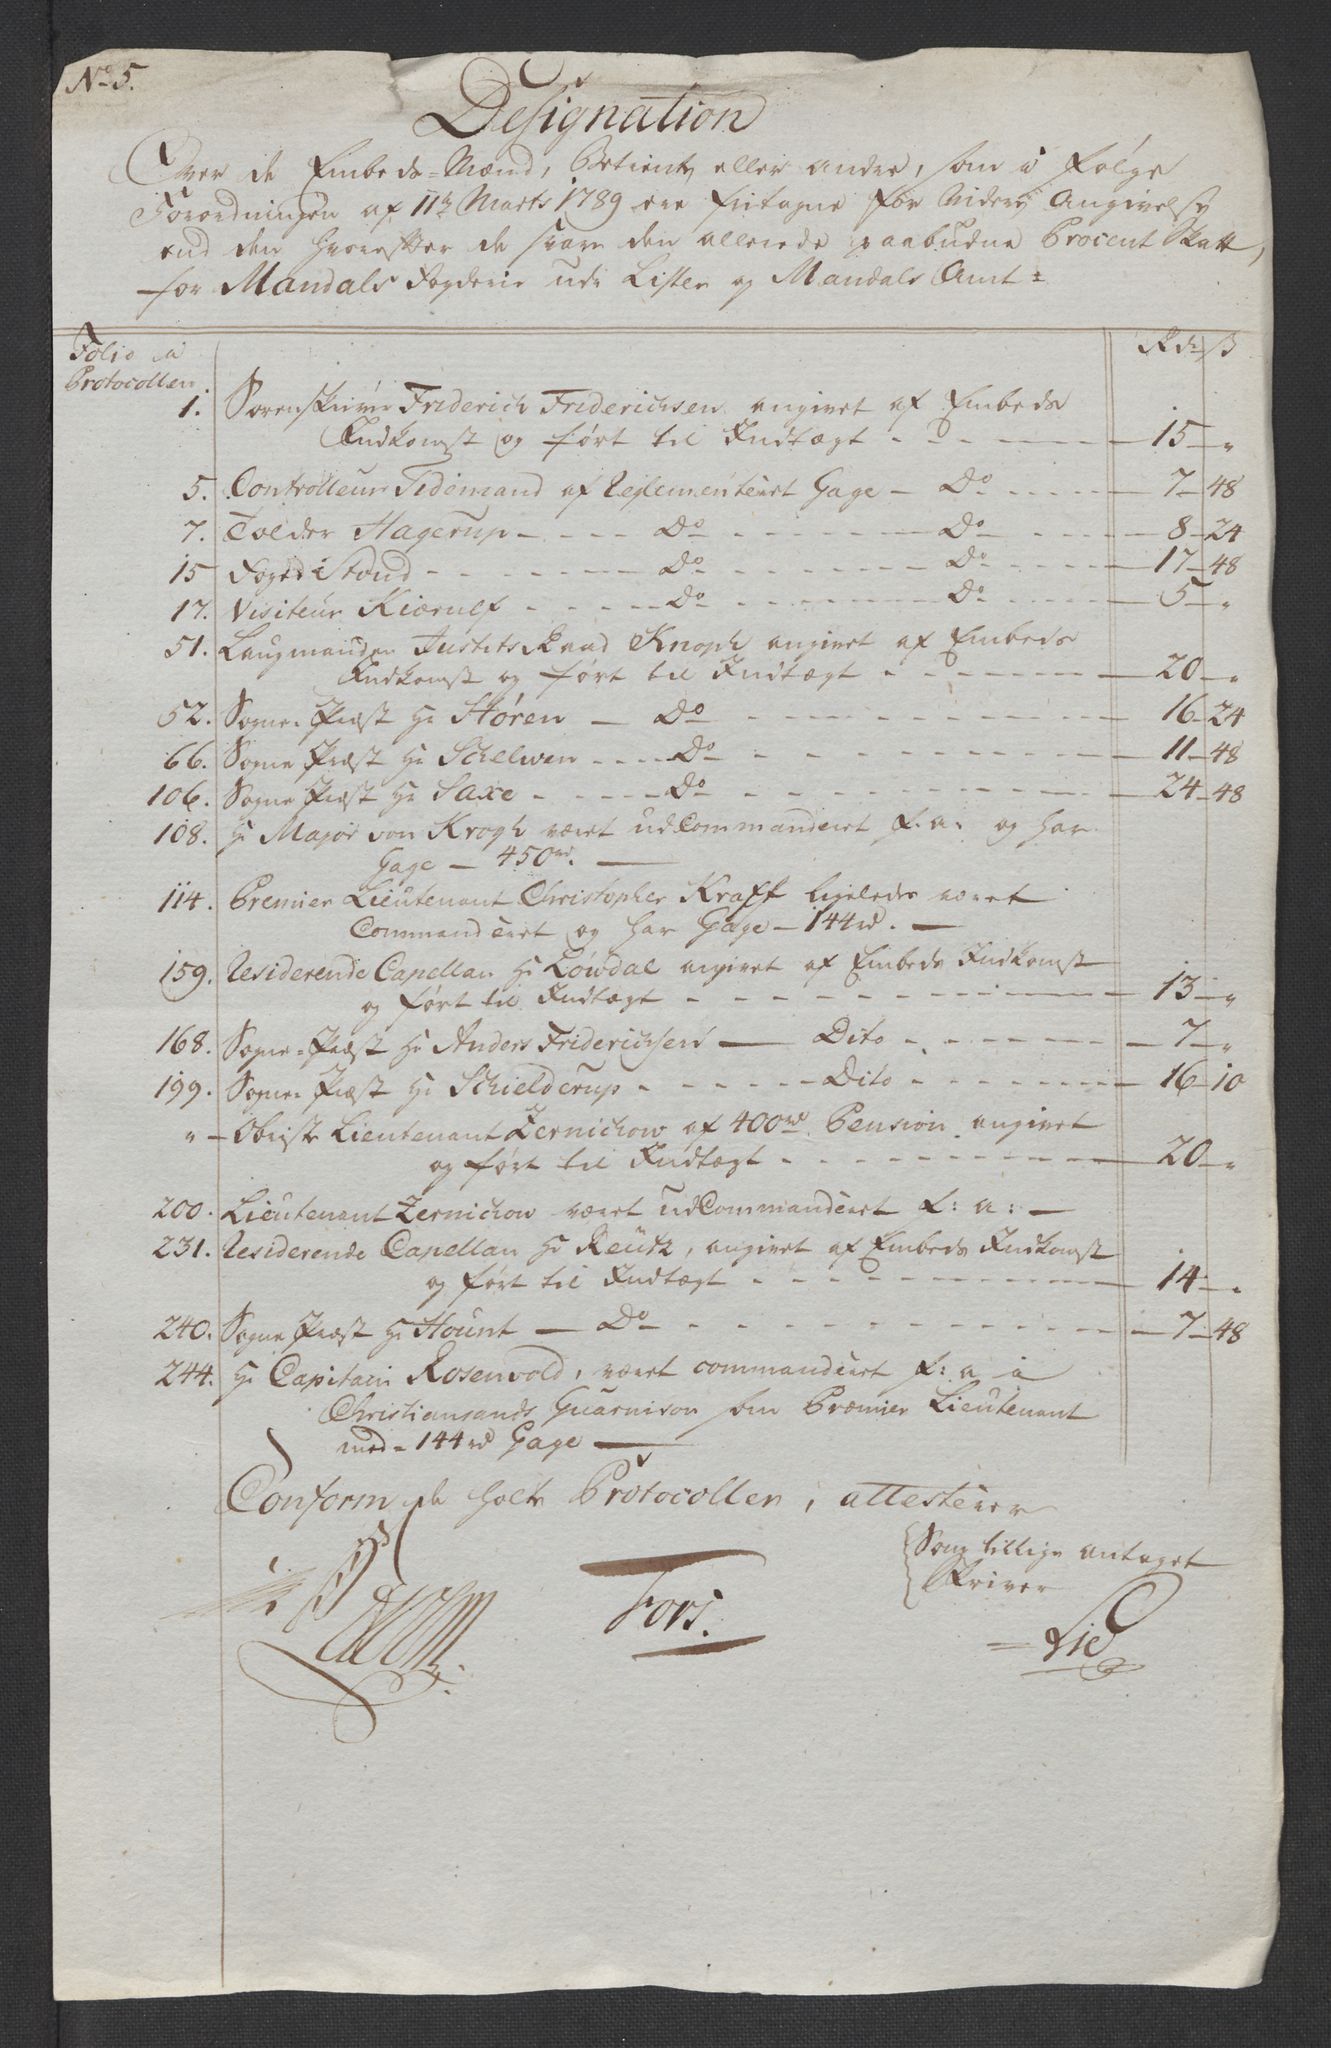 No 5.
Designation
Over de Embeds-Mænd, Betiente eller andre, som i Følge
Forordningen af 11te Marts 1789 ere fritagne for videre Angivelse
end den hvorefter de svare den allerede paabudne Procent Skatt,
for Mandals Fogderie udi Lister og Mandals Amt
Folio a Protocollen
Rdr ß
1. Sorenskriver Friderich Friderichsen angivet af Embeds
Indkomst og ført til Indtægt - - - 15 - "
5. Controlleur Tidemand af Reglementeret Gage - Do - - - 7 - 48
7. Tolder Hagerup - - - Do - - - Do - - - 8 - 24
15 Foged Stoud - - - Do - - - Do - - - 17 - 48
17. Visiteur Kierulf - - - Do - - - Do - - - 5 - "
51. Laugmanden Justits Raad Knoph angivet af Embeds
Indkomst og ført til Indtægt - - - 20 - "
52. Sogne-Præst Hr Støren - Do - - - 16 - 24
66. Sogne Præst Hr Schelwen - - - Do - - - 11 - 48
106. Sogne Præst Hr Saxe - - - Do - - - 24 - 48
108. Hr Major von Krogh været udCommanderet f: a: og har
Gage - 450rd. -
114. Premier Lieutenant Christopher Kraft ligeleds været
Commanderet og har Gage - 144rd. -
159. Residerende Capellan Hr Løwdal angivet af Embeds Indkomst
og ført til Indtægt - - - 13 - "
168. Sogne-Præst Hr Anders Friderichsen - Dito - - - 7 - "
199. Sogne-Præst Hr Schielderup - - - Dito - - - 16 - 10
" - Obrist Lieutenant Zernichow af 400rd Pension angivet
og ført til Indtægt - - - 20 - "
200. Lieutenant Zernichow været udCommanderet f: a: -
231. Residerende Capellan Hr Reutz, angivet af Embeds Indkomst
og ført til Indtægt - - - 14 - "
240. Sogne Præst Hr Hount - Do - - - 7 - 48
244. Hr Capitain Rosenvold, været commanderet f: a i
Christiansands Guarnison som Premier Lieutenant
med - 144rd Gage -
Conform de holte Protocoller, attesterer
Som tillige antaget
Skriver
Fors.
Lie